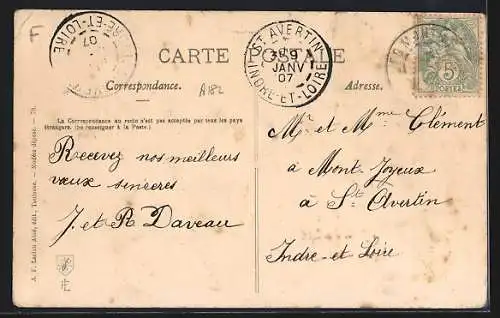 F
CARTE POSTALE
ST AVERTIN
9
JANV
07
INDRE-ET-LOIRE
07
5
POSTES
Correspondance.
A182
Adresse.
La Correspondance au recto n'est pas acceptée par tous les pays
étrangers. (Se renseigner à la Poste.)
Recevez nos meilleurs
vœux sincères
J. et R Daveau
Mr et Mme Clément
à Mont-Joyeux
à St Avertin
Indre-et Loire